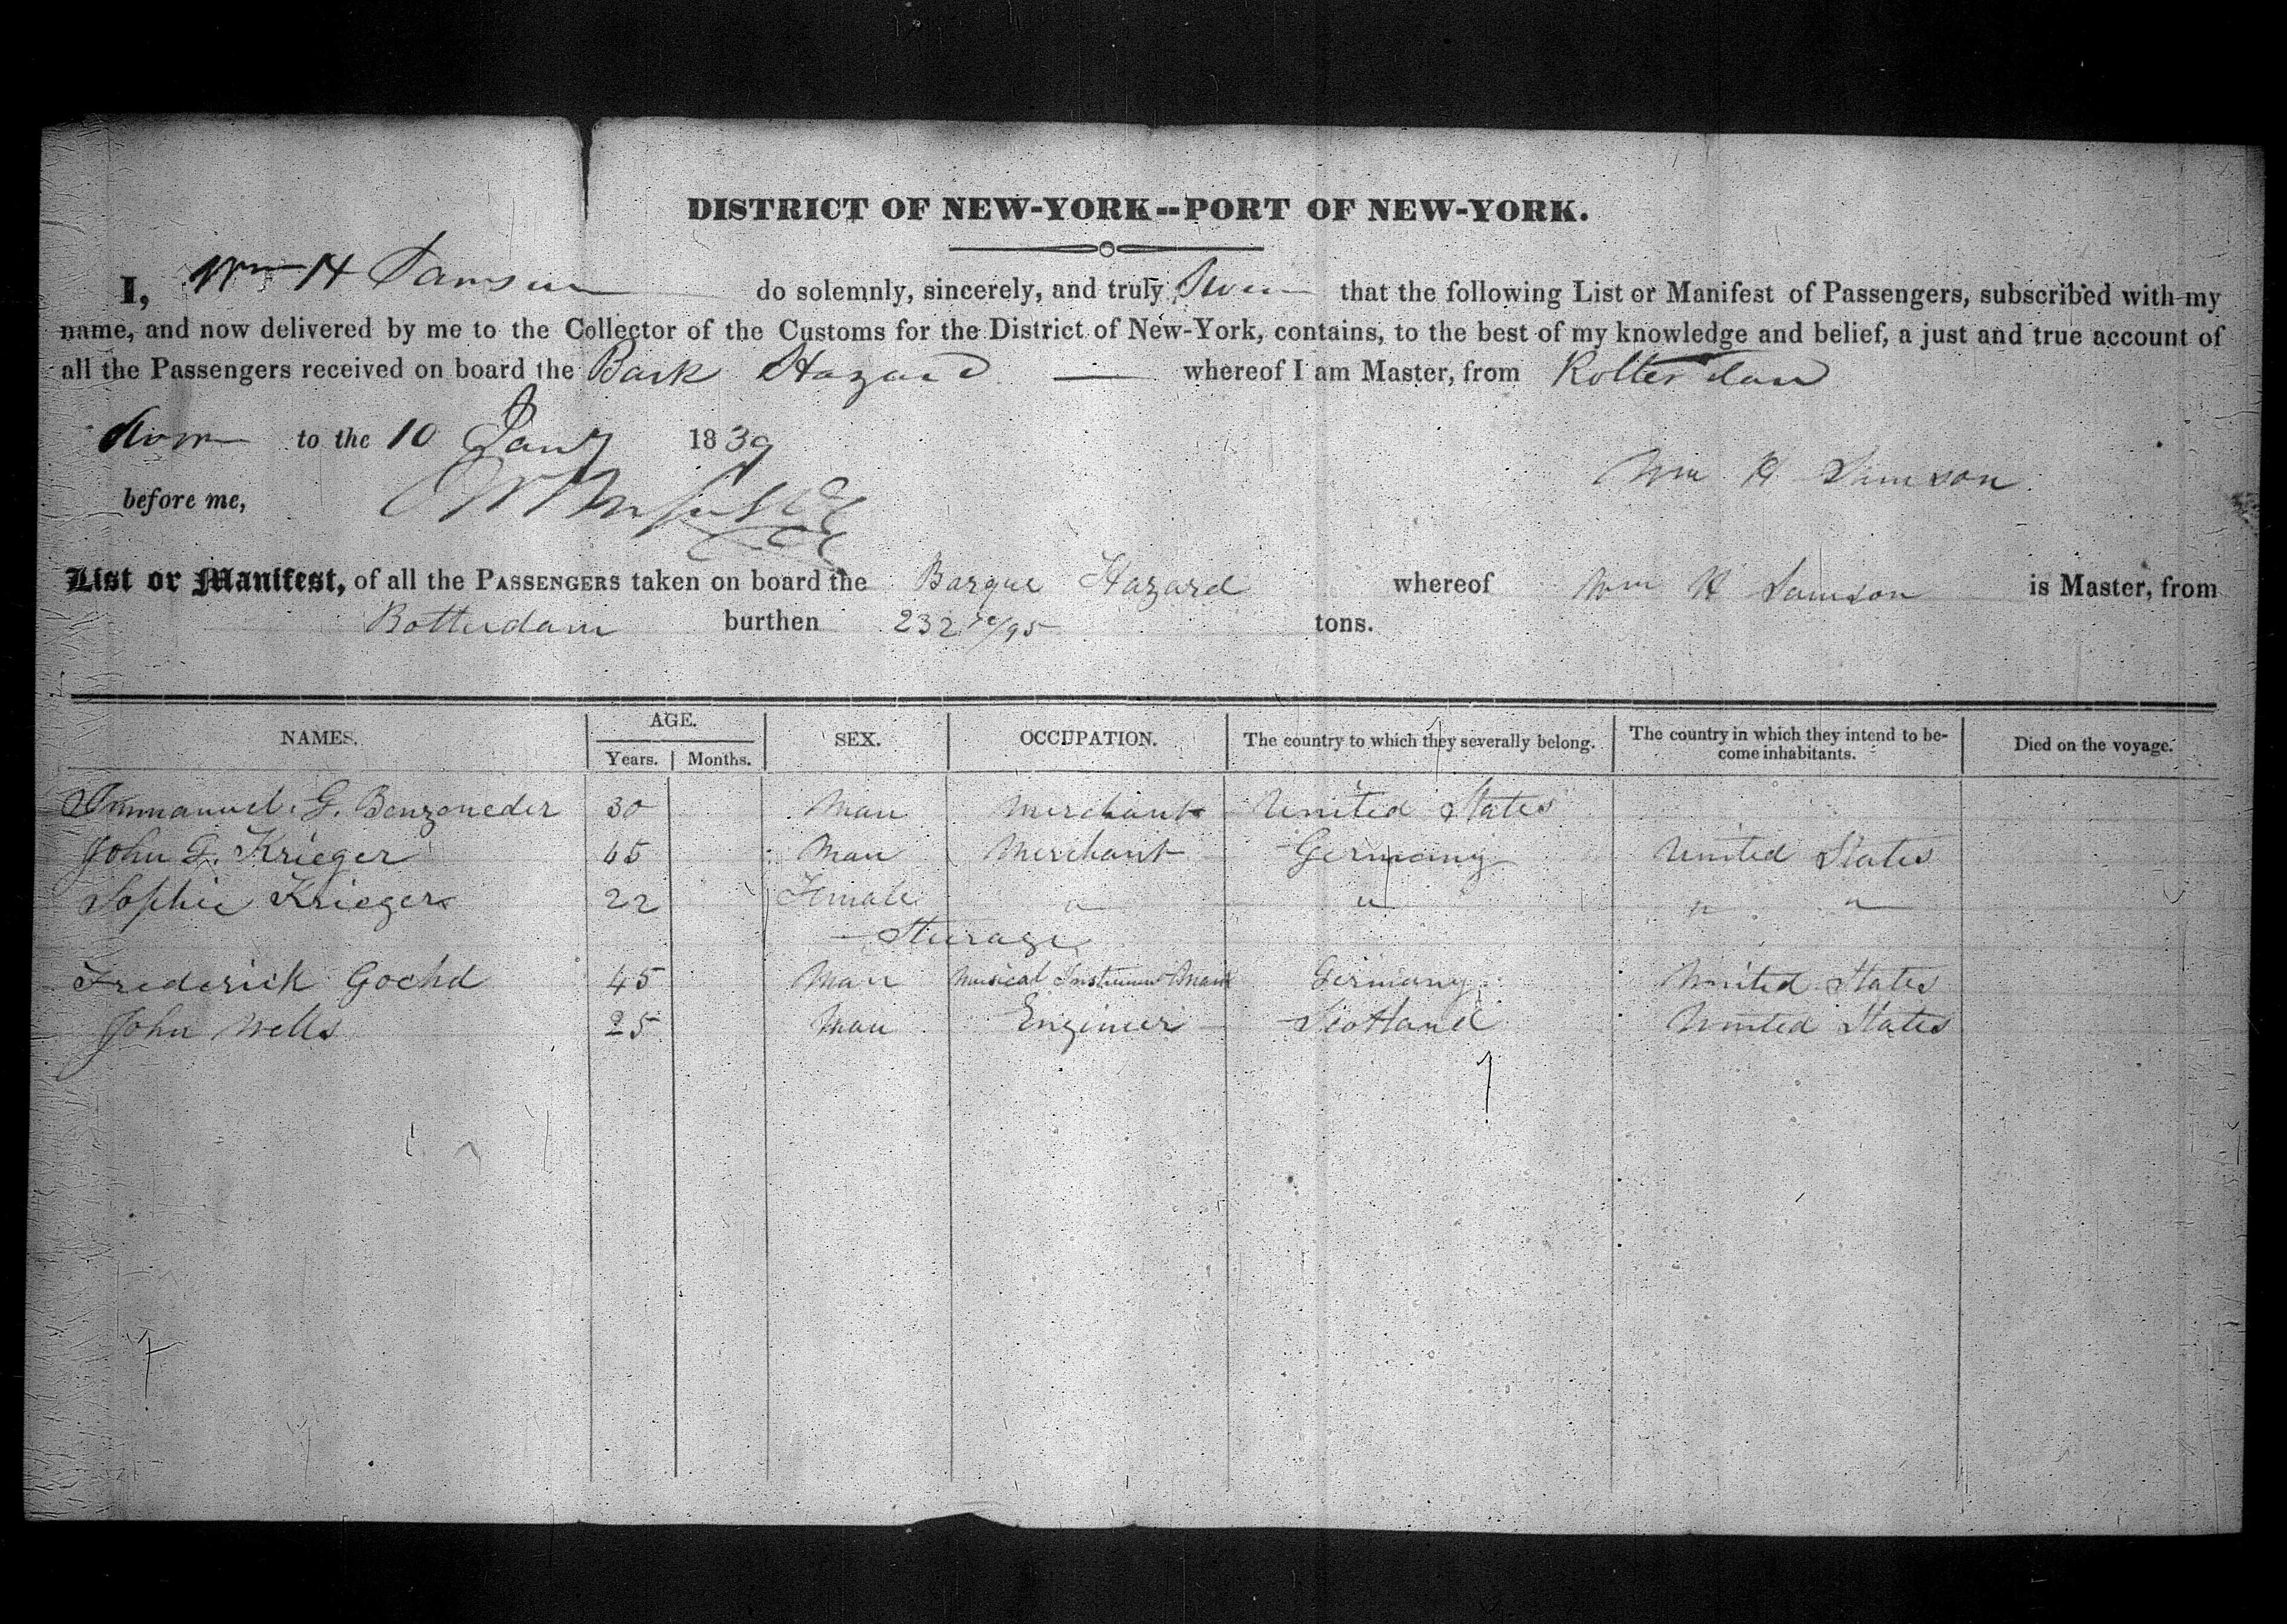 DISTRICT OF NEW-YORK--PORT OF NEW-YORK.
I, Wm H Samson do solemnly, sincerely, and truly Swear that the following List or Manifest of Passengers, subscribed with my
name, and now delivered by me to the Collector of the Customs for the District of New-York, contains, to the best of my knowledge and belief, a just and true account of
all the Passengers received on board the Bark Hazard whereof I am Master, from Rotterdam
Sworn to the 10 Jany 1839
Wm H Samson
before me,
List or Manifest, of all the PASSENGERS taken on board the Barque Hazard whereof Wm H Samson is Master, from
Rotterdam burthen 232 /95 tons.
NAMES. AGE. SEX. OCCUPATION. The country to which they severally belong. The country in which they intend to be-
come inhabitants. Died on the voyage.
Years. Months.
Emmanuel G. Benzoneder 30 Man Merchant United States
John G. Krieger 45 Man Merchant Germany United States
Sophie Krieger 22 Female " " " "
Steerage
Frederick Gochd 45 Man Musical Instrument Maker Germany United States
John Wells 25 Man Engineer Scotland United States